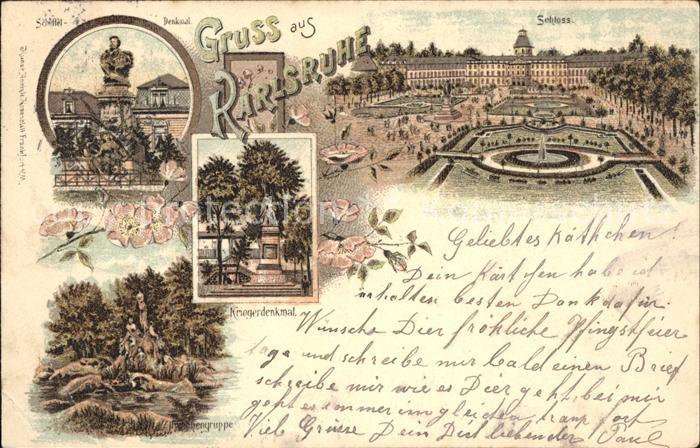 Scheffel-Denkmal.
Gruss aus
Karlsruhe
Schloss.
Kriegerdenkmal.
Nymphengruppe
Geliebtes Käthchen!
Dein Kärtchen habe ich
erhalten besten Dank dafür.
Wünsche Dier fröhliche Pfingstfeier
tage und schreibe mir bald einen Brief
schreibe mir wie es Dier geht, bei mir
geht es immer im gleichen fort
Viel Grüsse Dein Dich liebender